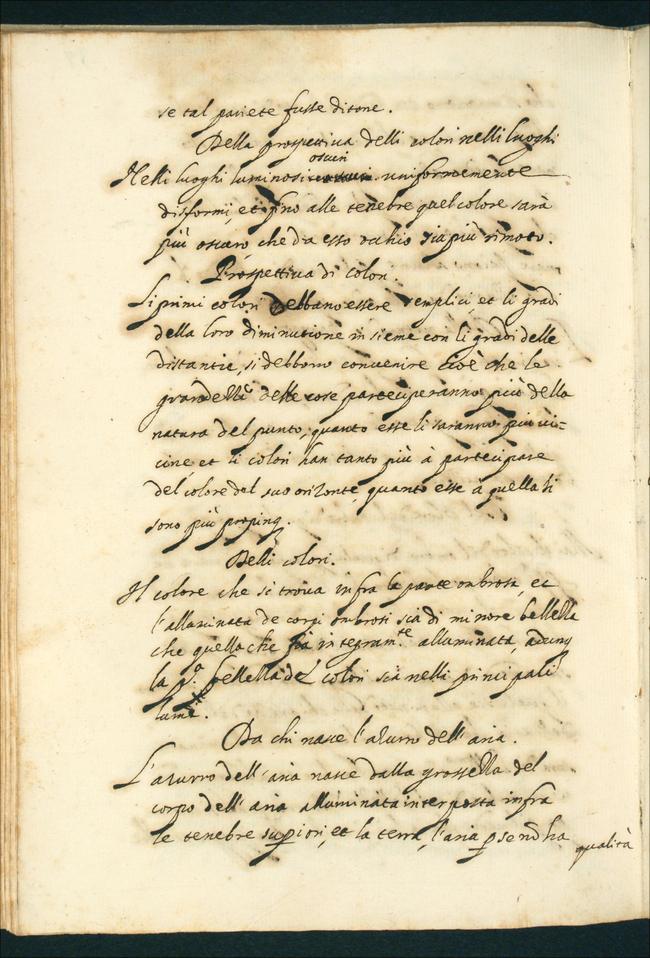 se tal pariete fusse di tone.
Della prospettiva delli colori nelli luoghi
oscuri
Nelli luoghi luminosi uniformemente
disformi, et fino alle tenebre quel colore sarà
più oscuro che da esso ochio sia più rimoto.
Prospettiva di colori.
Li primi colori debbano essere semplici, et li gradi
della loro diminutione insieme con li gradi delle
distantie, si debbono convenire cioè che le
grandezze delle cose parteciperanno più della
natura del punto, quanto esse li saranno più vi=
cine, et li colori han tanto più à partecipare
del colore del suo orizonte, quanto esse à quello li
sono più proping.
Delli colori.
Il colore che si trova infra la parte onbrosa, et
l'alluminata de corpi onbrosi sia di minore bellezza
che quello che fia integram.te alluminata, adunq
la p.a bellezza de colori sia nelli principali
lumi.
Da chi nasce l'azurro dell'aria.
L'azurro dell'aria nasce dalla grossezza del
corpo dell'aria alluminata interposta infra
le tenebre supiori, et la terra, l'aria p se nō ha
qualità